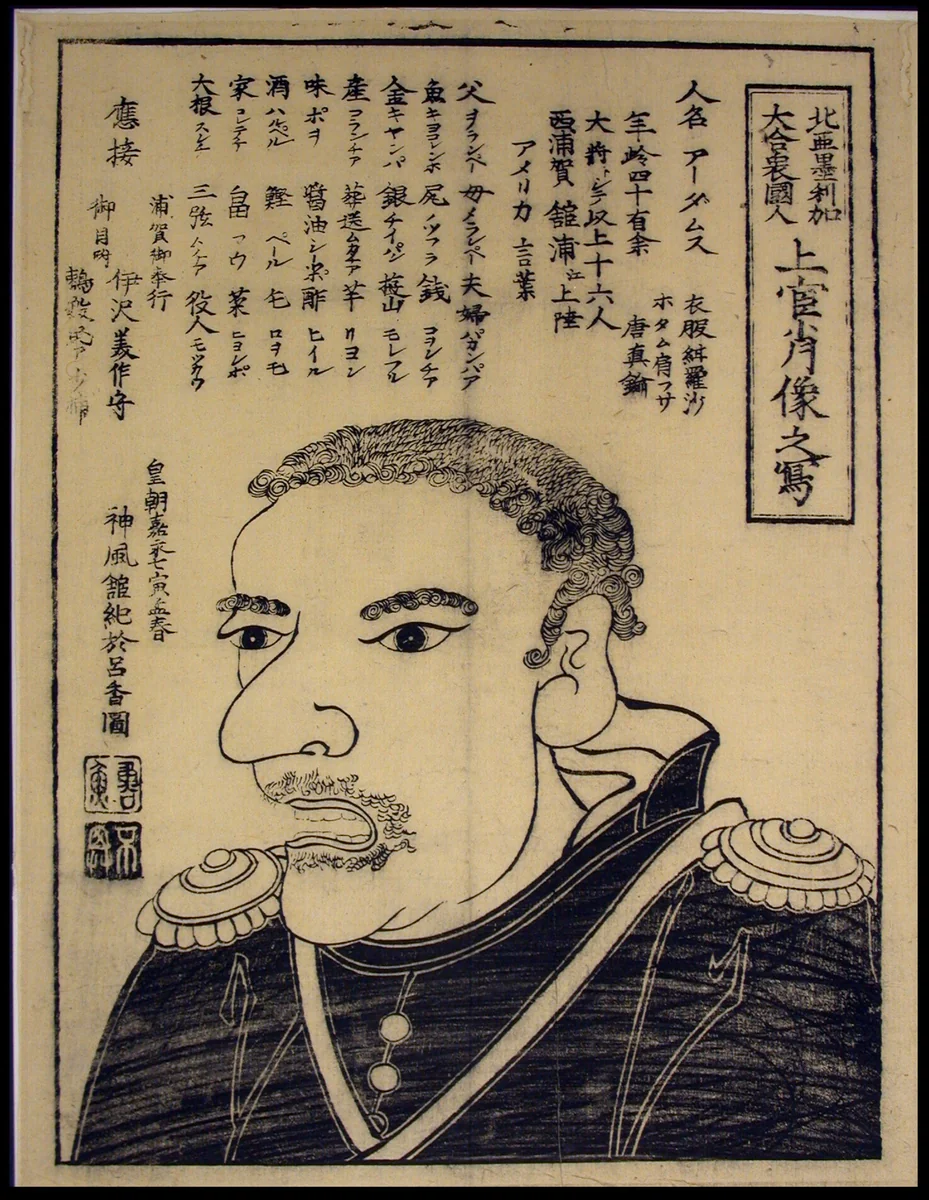 北亜墨利加
大合衆國人
上官肖像之寫
人名アーダムス
年岭四十有余
大将シテ以上十六人
西浦賀舘浦江上陸
衣服緋羅沙
ホタム肩フサ
唐真鍮
アメリカ言葉
父ヲランペー 母メランペー 夫婦パカンパア
魚キヨコレンホ 尻ノツフラ 銭コヲンチア
金キヤンパ 銀チイパン 山モレフル
産コランチア 葬送ムカタア 芋リヨン
味ポヲ 醤油シーポン 酢ヒイル
酒ハルペル 鰹ペール 毛ロヲモ
家コンテイチ 畠フウ 菜ヒヨレポ
大根スレエ 三弦 役人モツカウ
應接
浦賀御奉行
伊沢美作守
御目附
皇朝嘉永七寅孟春
神風舘紀於呂香圖